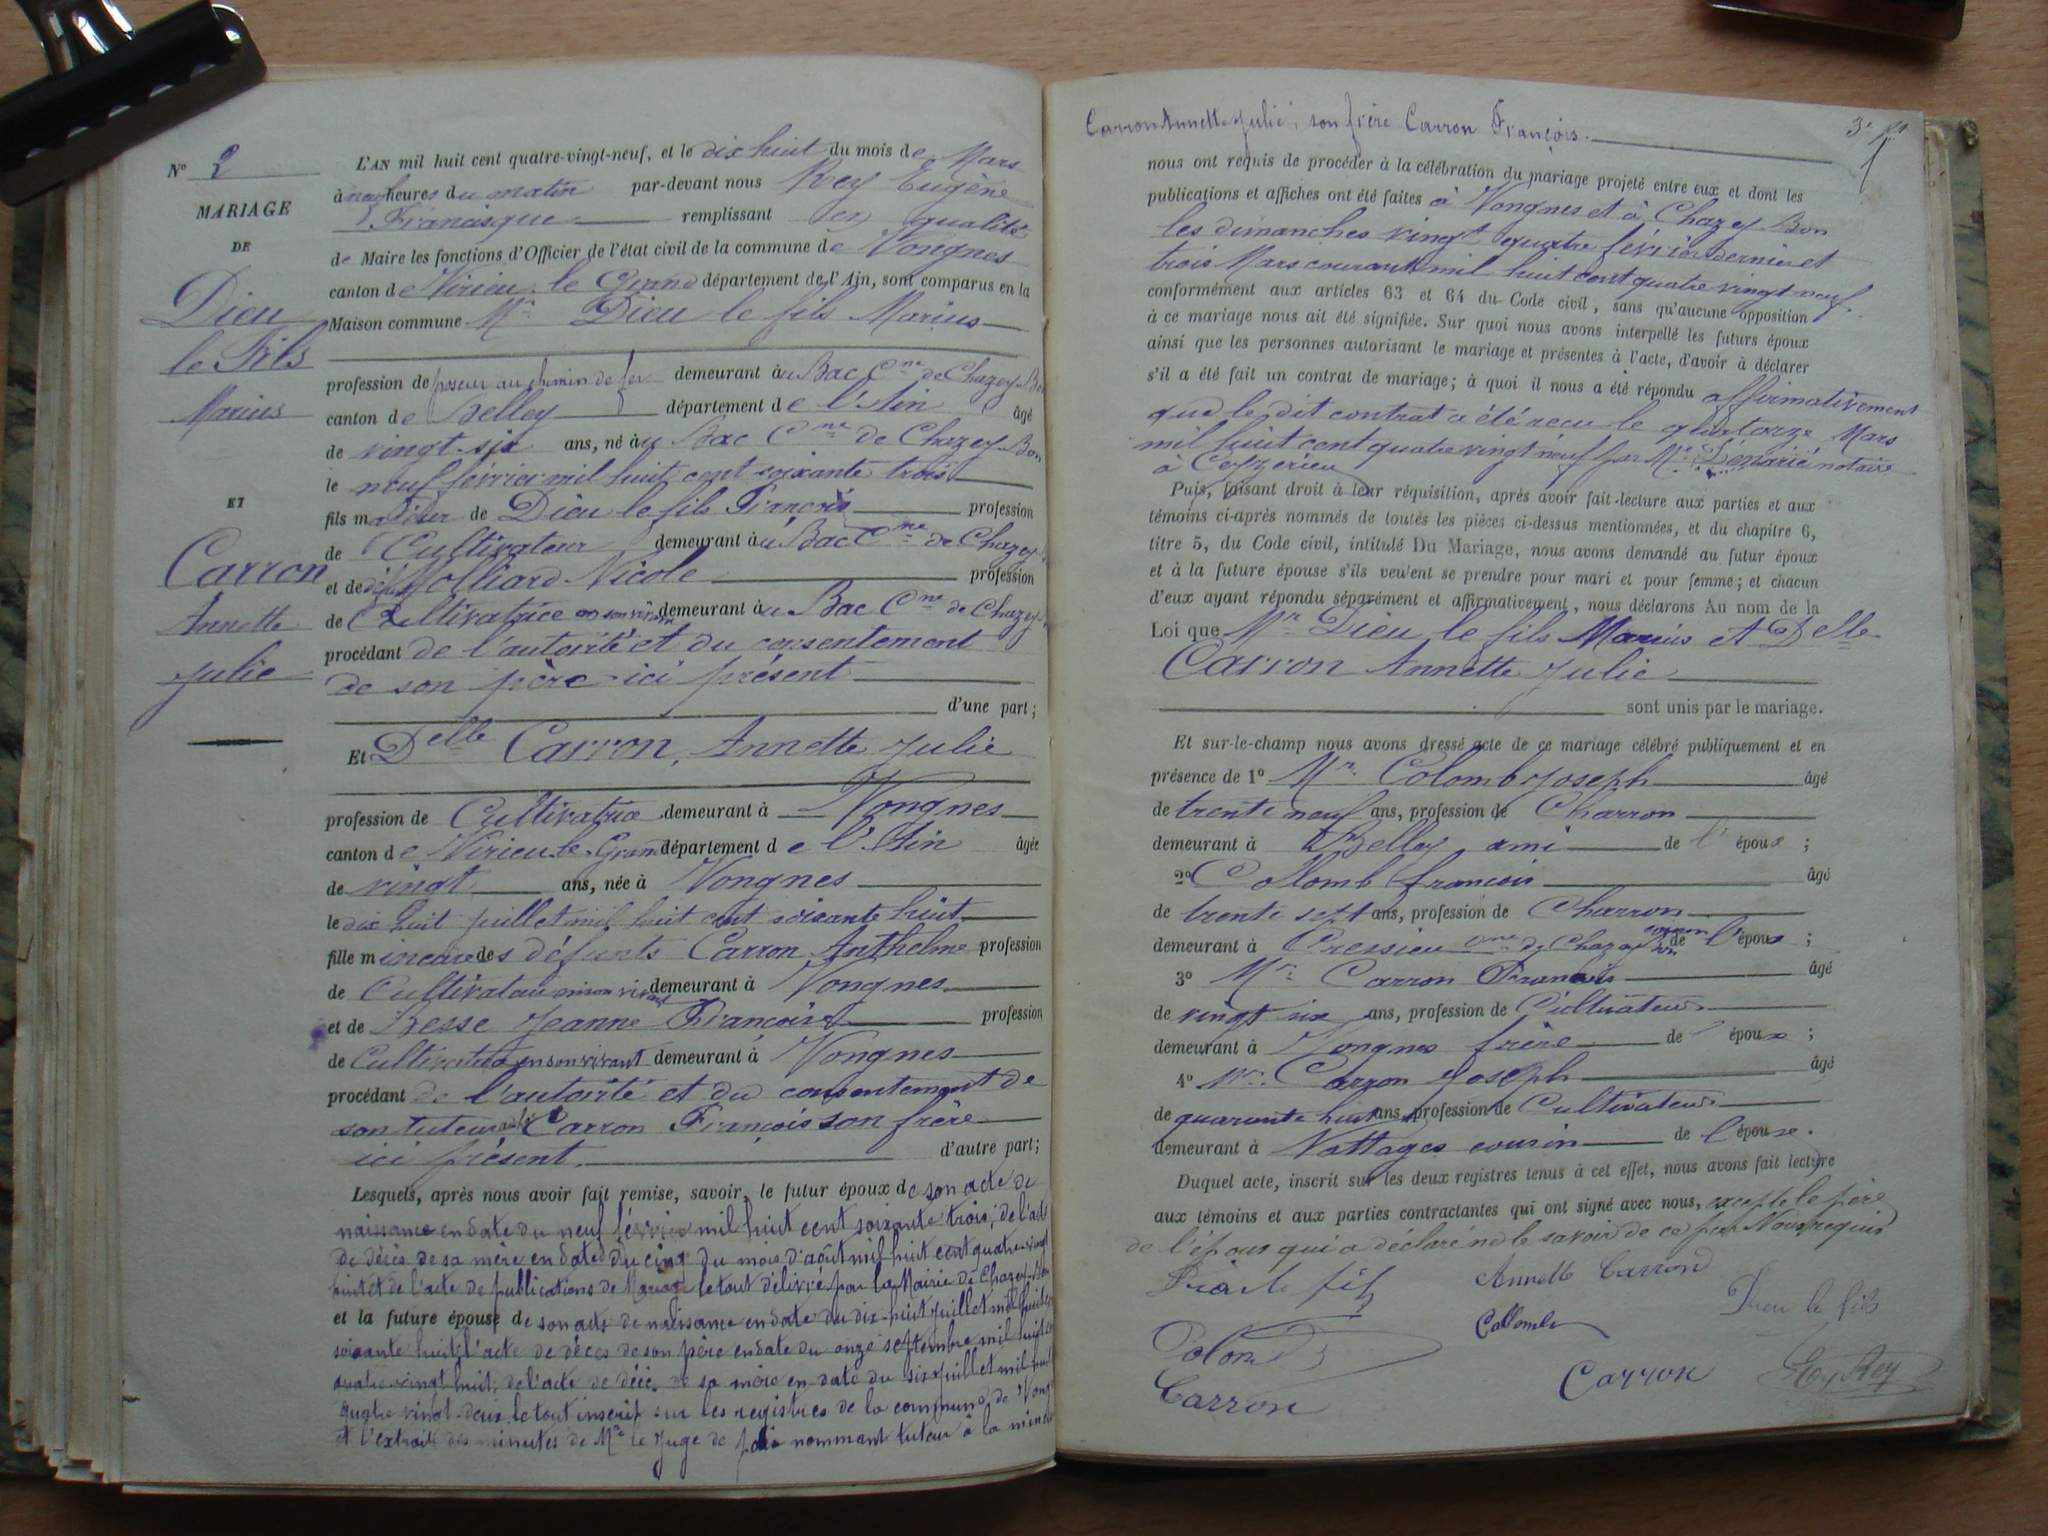 N° 2
MARIAGE
DE
Dieu
le Fils
Marius
ET
Carron
Annette
Julie
L'AN mil huit cent quatre-vingt-neuf, et le dix huit du mois de Mars
à neuf heures du matin par-devant nous Rey Eugène
Francisque remplissant en qualité
de Maire les fonctions d'Officier de l'état civil de la commune de Vongnes
canton de Virieu le Grand département de l'Ain, sont comparus en la
Maison commune Mr Dieu le fils Marius
profession de poseur au chemin de fer demeurant au Bac Cne de Chazey-Bon
canton de Belley département de l'Ain âgé
de vingt-six ans, né au Bac Cne de Chazey-Bon
le neuf février mil huit cent soixante trois
fils majeur de Dieu le fils François profession
de Cultivateur demeurant au Bac Cne de Chazey-
et de défunte Molliard Nicole profession
de Cultivatrice en son vivant demeurant au Bac Cne de Chazey-
procédant de l'autorité et du consentement
de son père ici présent
d'une part;
Et Delle Carron, Annette Julie
profession de Cultivatrice demeurant à Vongnes
canton de Virieu-le-Grand département de l'Ain âgée
de vingt ans, née à Vongnes
le dix huit juillet mil huit cent soixante huit
fille mineure des défunts Carron Anthelme profession
de Cultivateur en son vivant demeurant à Vongnes
et de Besse Jeanne Françoise profession
de Cultivatrice en son vivant demeurant à Vongnes
procédant de l'autorité et du consentement de
son tuteur Carron François son frère
ici présent. d'autre part;
Lesquels, après nous avoir fait remise, savoir, le futur époux de son acte de
naissance en date du neuf février mil huit cent soixante trois, de l'acte
de décès de sa mère en date du cinq du mois d'août mil huit cent quatre-vingt
huit et de l'acte de publications de Mariage le tout délivré par la Mairie de Chazey-Bon
et la future épouse de son acte de naissance en date du dix-huit juillet mil huit cent
soixante huit, l'acte de décès de son père en date du onze septembre mil huit cent
quatre-vingt huit, de l'acte de décès de sa mère en date du six juillet mil huit
quatre vingt-deux le tout inscrit sur les registres de la commune de Vongnes
et l'extrait des minutes de Mr le Juge de paix nommant tuteur à la mineure
Carron Annette Julie, son frère Carron François.
nous ont requis de procéder à la célébration du mariage projeté entre eux et dont les
publications et affiches ont été faites à Vongnes et à Chazey Bon
les dimanches vingt quatre février dernier et
trois Mars courant mil huit cent quatre vingt neuf
conformément aux articles 63 et 64 du Code civil, sans qu'aucune opposition
à ce mariage nous ait été signifiée. Sur quoi nous avons interpellé les futurs époux
ainsi que les personnes autorisant le mariage et présentes à l'acte, d'avoir à déclarer
s'il a été fait un contrat de mariage; à quoi il nous a été répondu affirmativement
que le dit contrat a été reçu le quatorze Mars
mil huit cent quatre vingt neuf par Me Lenarié notaire
à Ceyzerieu
Puis, faisant droit à leur réquisition, après avoir fait lecture aux parties et aux
témoins ci-après nommés de toutes les pièces ci-dessus mentionnées, et du chapitre 6,
titre 5, du Code civil, intitulé Du Mariage, nous avons demandé au futur époux
et à la future épouse s'ils veulent se prendre pour mari et pour femme; et chacun
d'eux ayant répondu séparément et affirmativement, nous déclarons Au nom de la
Loi que Mr Dieu le fils Marius et Delle
Carron Annette Julie
sont unis par le mariage.
Et sur-le-champ nous avons dressé acte de ce mariage célébré publiquement et en
présence de 1° Mr Colomb Joseph âgé
de trente neuf ans, profession de Charron
demeurant à Belley ami de l'époux;
2° Collomb françois âgé
de trente sept ans, profession de Charron
demeurant à Cressieu Cne de Chazey Bon cousin de l'époux;
3° Mr Carron François âgé
de vingt six ans, profession de Cultivateur
demeurant à Vongnes frère de l'épouse;
4° Mr Carron Joseph âgé
de quarante huit ans, profession de Cultivateur
demeurant à Nattages cousin de l'épouse.
Duquel acte, inscrit sur les deux registres tenus à cet effet, nous avons fait lecture
aux témoins et aux parties contractantes qui ont signé avec nous, excepté le père
de l'époux qui a déclaré ne le savoir de ce par Nous requis
Annette Carron
Dieu le fils
Collomb
Colomb
Carron
Carron
Rey